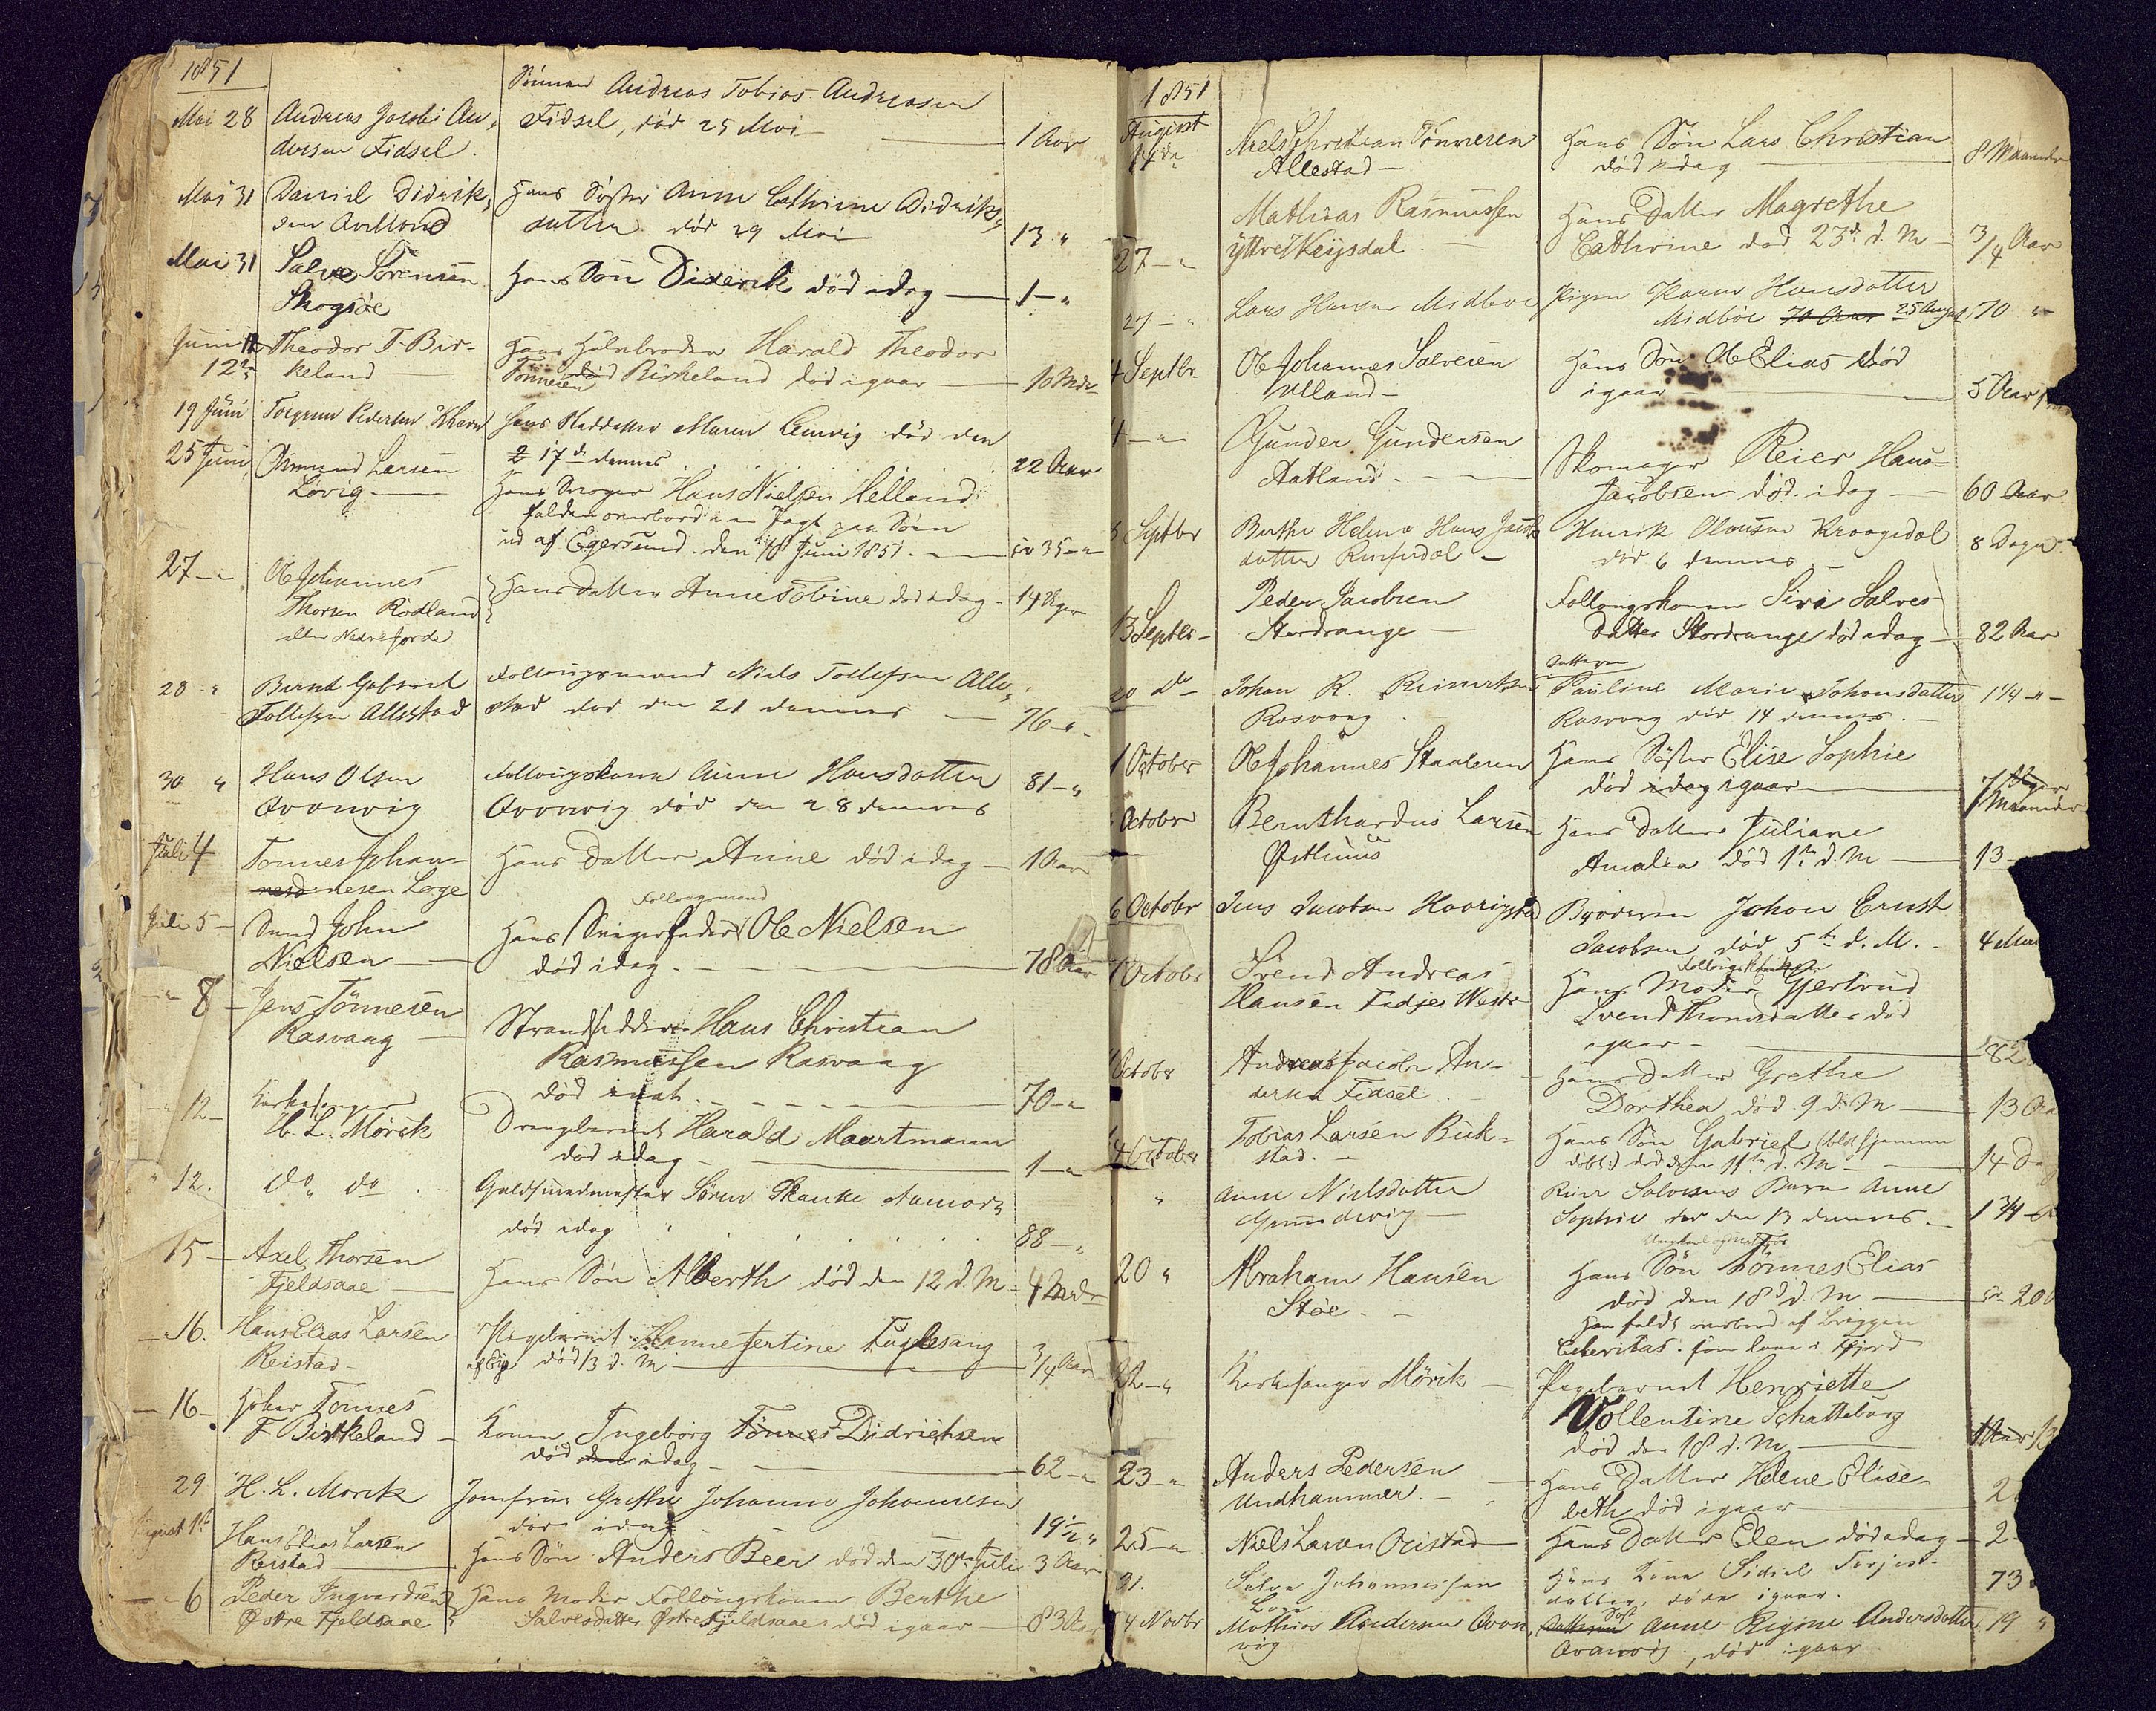 1851
Mai 28 Andreas Jacobi An-
dersen Fidsel.
Sønnen Andreas Tobias Andreasen
Fidsel, død 25 Mai — 1 Aar
Mai 31 Daniel Didrik-
sen
Hans Søster Anne Cathrine Didriks-
datter død 29 Mai 13 "
Mai 31 Salve Sørensen
Skogsøe
Hans Søn Diderik død idag — 1 — "
Juni
12te Theodor T. Bir-
keland —
Hans Halvbroder Harald Theodor
Tønnesen Birkeland død igaar — 10 Mdr
19 Juni Torgrim Pedersen
Hans Maren død den
2 17de dennes 22 Aar
25 Juni Osmund Larsen
Lovig. —
Hans Svoger Hans Nielsen Helland
falden overbord i en Jagt paa Søen
ud af Egersund. den 18 Juni 1851. — 35 — "
27 — " Ole Johannes
Thorsen Rødland
eller Nedrefjorde
Hans Datter Anne Tobine død idag — 14 Uger
28 " Bernt Gabriel
Tollefsen Allestad
Follougsmand Niels Tollefsen Alle-
stad død den 21 dennes — 76 — "
30 " Hans Olsen
Follougskone Anne Hansdatter
død den 28 dennes 81 — "
Juli 4 Tønnes Johan-
nesd nesen Loge
Hans Datter Anine død idag — 1 Aar
Juli 5 — Sund John
Nielsen —
Follougsmand
Hans Svigerfader Ole Nielsen
død idag. — 78 Aar
— " 8 — Jens Tønnesen
Rasvaag —
Strandsidder Hans Christian
Rasmussen Rasvaag
død inat. — 70 — "
12 — Kirkesanger
H. L. Mørck
Drengebarnet Harald Maartmann
død idag — 1 — "
" 12. do " do
Guldsmedmester Søren
død idag 88 — "
15 — Axel Thorsen
Fjeldsaae —
Hans Søn Alberth død den 12 d. M — 4 Mdr
— 16. Hans Elias Larsen
Reistad —
Pigebarnet Hanne Jertine Fuglesang
død 13 d. M — 3/4 Aar
— 16 — Tønnes
F Birkeland —
Konen Ingeborg Tønnes Didrichsen
død den idag — 62 — "
29 H. L. Mørck
Jomfrue Grethe Johanne Johannesen
død idag 19 1/2 "
August 1st Hans Elias Larsen
Reistad —
Hans Søn Anders Beer død den 30te Juli 3 Aar
— " 6 Peder Ingvardsen
Østre Fjeldsaae
Hans Moder Follougskonen Berthe
Salvesdatter Østre Fjeldsaae død igaar — 83 Aar
1851
August
14de Niels Christian Tønnesen
Allestad —
Hans Søn Lars Christian
død idag — 8 Maaneder
27 — " Mathias Rasmussen
yttre
Hans Datter Magrethe
Cathrine død 23de d. M — 3/4 Aar
27 — " Lars Hansen Midbøe
Pigen Karen Hansdatter
Midbøe 70 Aar 25 August 70 "
4 Septbr. Ole Johannes Salvesen
Ulland —
Hans Søn Ole Elias død
igaar — 5 Aar
4 — " Gunder Gundersen
Aatland. —
Skomager Reier Hans
Jacobsen død. idag — 60 Aar
8 Septbr Berthe Helene Hans Jacobs
datter
Henrik Olausen
død 6 dennes — 8 Dage
13 Septbr — Peder Jacobsen
Stordrange —
Follougskonen Siri Salves-
datter Stordrange død idag — 82 Aar
20 do — Johan R. Reinertsen
Rasvaag .
Datteren
Pauline Marie Johansdatter
Rasvaag død 14 dennes. — 1 1/4 — " —
1 October Ole Johannes
Hans Søster Elise Sophie
død idag igaar — 7 Uger
Maaneder
October Bernthardus Larsen
Østhuus
Hans Datter Juliane
Amalia død 1te d. M — 13 —
6 October Jens Jacobsen
Broderen Johan Ernst
Jacobsen død 5te d. M. — 4
7 October Svend Andreas
Hansen Fidje West-
Follougskone
Hans Moder Gjertrud
Svend Thomsdatter død
igaar — 82
October Andreas Jacobi An-
dersen Fidsel. —
Hans Datter Grethe
Dorthea død. 9 d. M — 13
14 October Tobias Larsen Bick-
stad. —
Hans Søn Gabriel
døbt) død den 11te d. M — 14
" Anne Nielsdatter
Reier Salvesens Barn Anne
Sophie død den 13 dennes — 1 3/4
20 " Abraham Hansen
Støe. —
Hans Søn Tønnes Elias
død den 18de d. M — 20
Han faldt overbord af Briggen
22 — " Kirkesanger Mørck —
Pigebarnet Henriette
Vollentine Schatteborg
død den 18 d. M —
23 — " Anders Pedersen
Undhammer. —
Hans Datter Helene Elise-
beth død igaar — 2
25 — " Niels Larsen
Hans Datter Elen død idag — 2
31. Salve Johannessen
Hans Kone Sidsel Torjus-
datter, døde igaar. 73
4 Novbr Mathias Andersen
vig
Datteren Anne Regine Andersdatter
død igaar 19 "